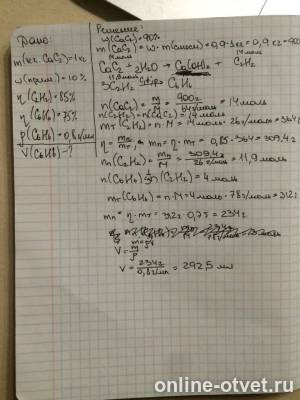 Дано:
m(тех. CaC₂) = 1кг
w(прим.) = 10%
η(C₂H₂) = 85%
η(C₆H₆) = 75%
ρ(C₆H₆) = 0,8г/мл
V(C₆H₆) - ?
Решение:
w(CaC₂) = 90%
m(CaC₂) = w · m(смеси) = 0,9 · 1кг = 0,9 кг = 900
14моль 14моль
CaC₂ + 2H₂O → Ca(OH)₂ + C₂H₂
11,9моль
3C₂H₂ C акт, t° C₆H₆
n(CaC₂) = m/M = 900г/64г/моль = 14 моль
n(C₂H₂) = n(CaC₂) = 14 моль
mт(C₂H₂) = n · M = 14 моль · 26 г/моль = 364г
η = mп/mт; mп = η · mт = 0,85 · 364 = 309,4г
n(C₂H₂) = m/M = 309,4г/26 г/моль = 11,9 моль
n(C₆H₆) = 1/3 n(C₂H₂) = 4 моль
mт(C₆H₆) = n · M = 4 моль · 78г/моль = 312г
mп = η · mт = 312г · 0,75 = 234г
V = m/ρ
V = 234г/0,8г/мл = 292,5 мл
online-otvet.ru